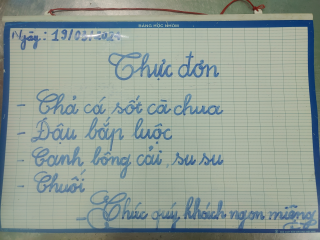 BẢNG HỌC NHÓM
Ngày: 19/03/
Thực đơn
- Chả cá sốt cà chua
- Đậu bắp luộc
- Canh bông cải, su su
- Chuối
- Chúc quý khách ngon miệng